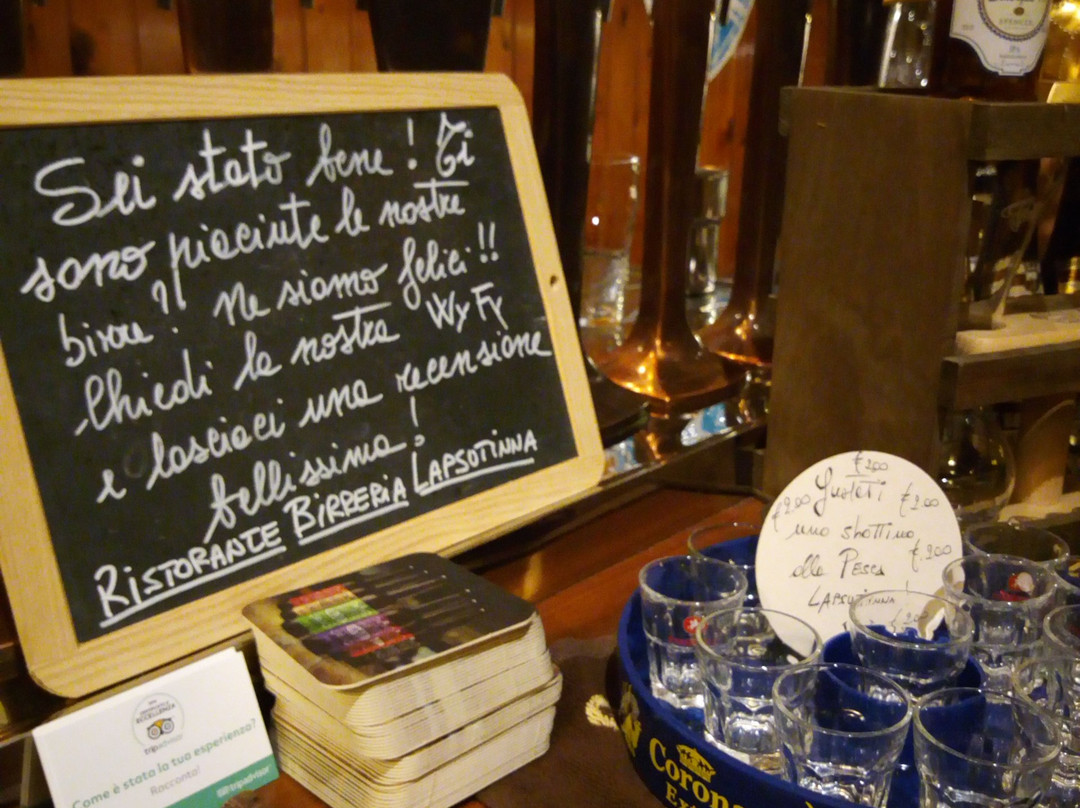 Sei stato bene! Ti
sono piaciute le nostre
birre?! Ne siamo felici!!
Chiedi la nostra WyFy
e lasciaci una recensione
bellissima!
RISTORANTE BIRRERIA LAPSOTINNA
€2,00
Gustati
€2,00
€2,00
uno shottino
alla PESCA
€.2,00
LAPSOTINNA
ECCELLENZA
tripadvisor
Come è stata la tua esperienza?
Racconta!
tripadvisor
Corona
Ex
SPENCER
IPA